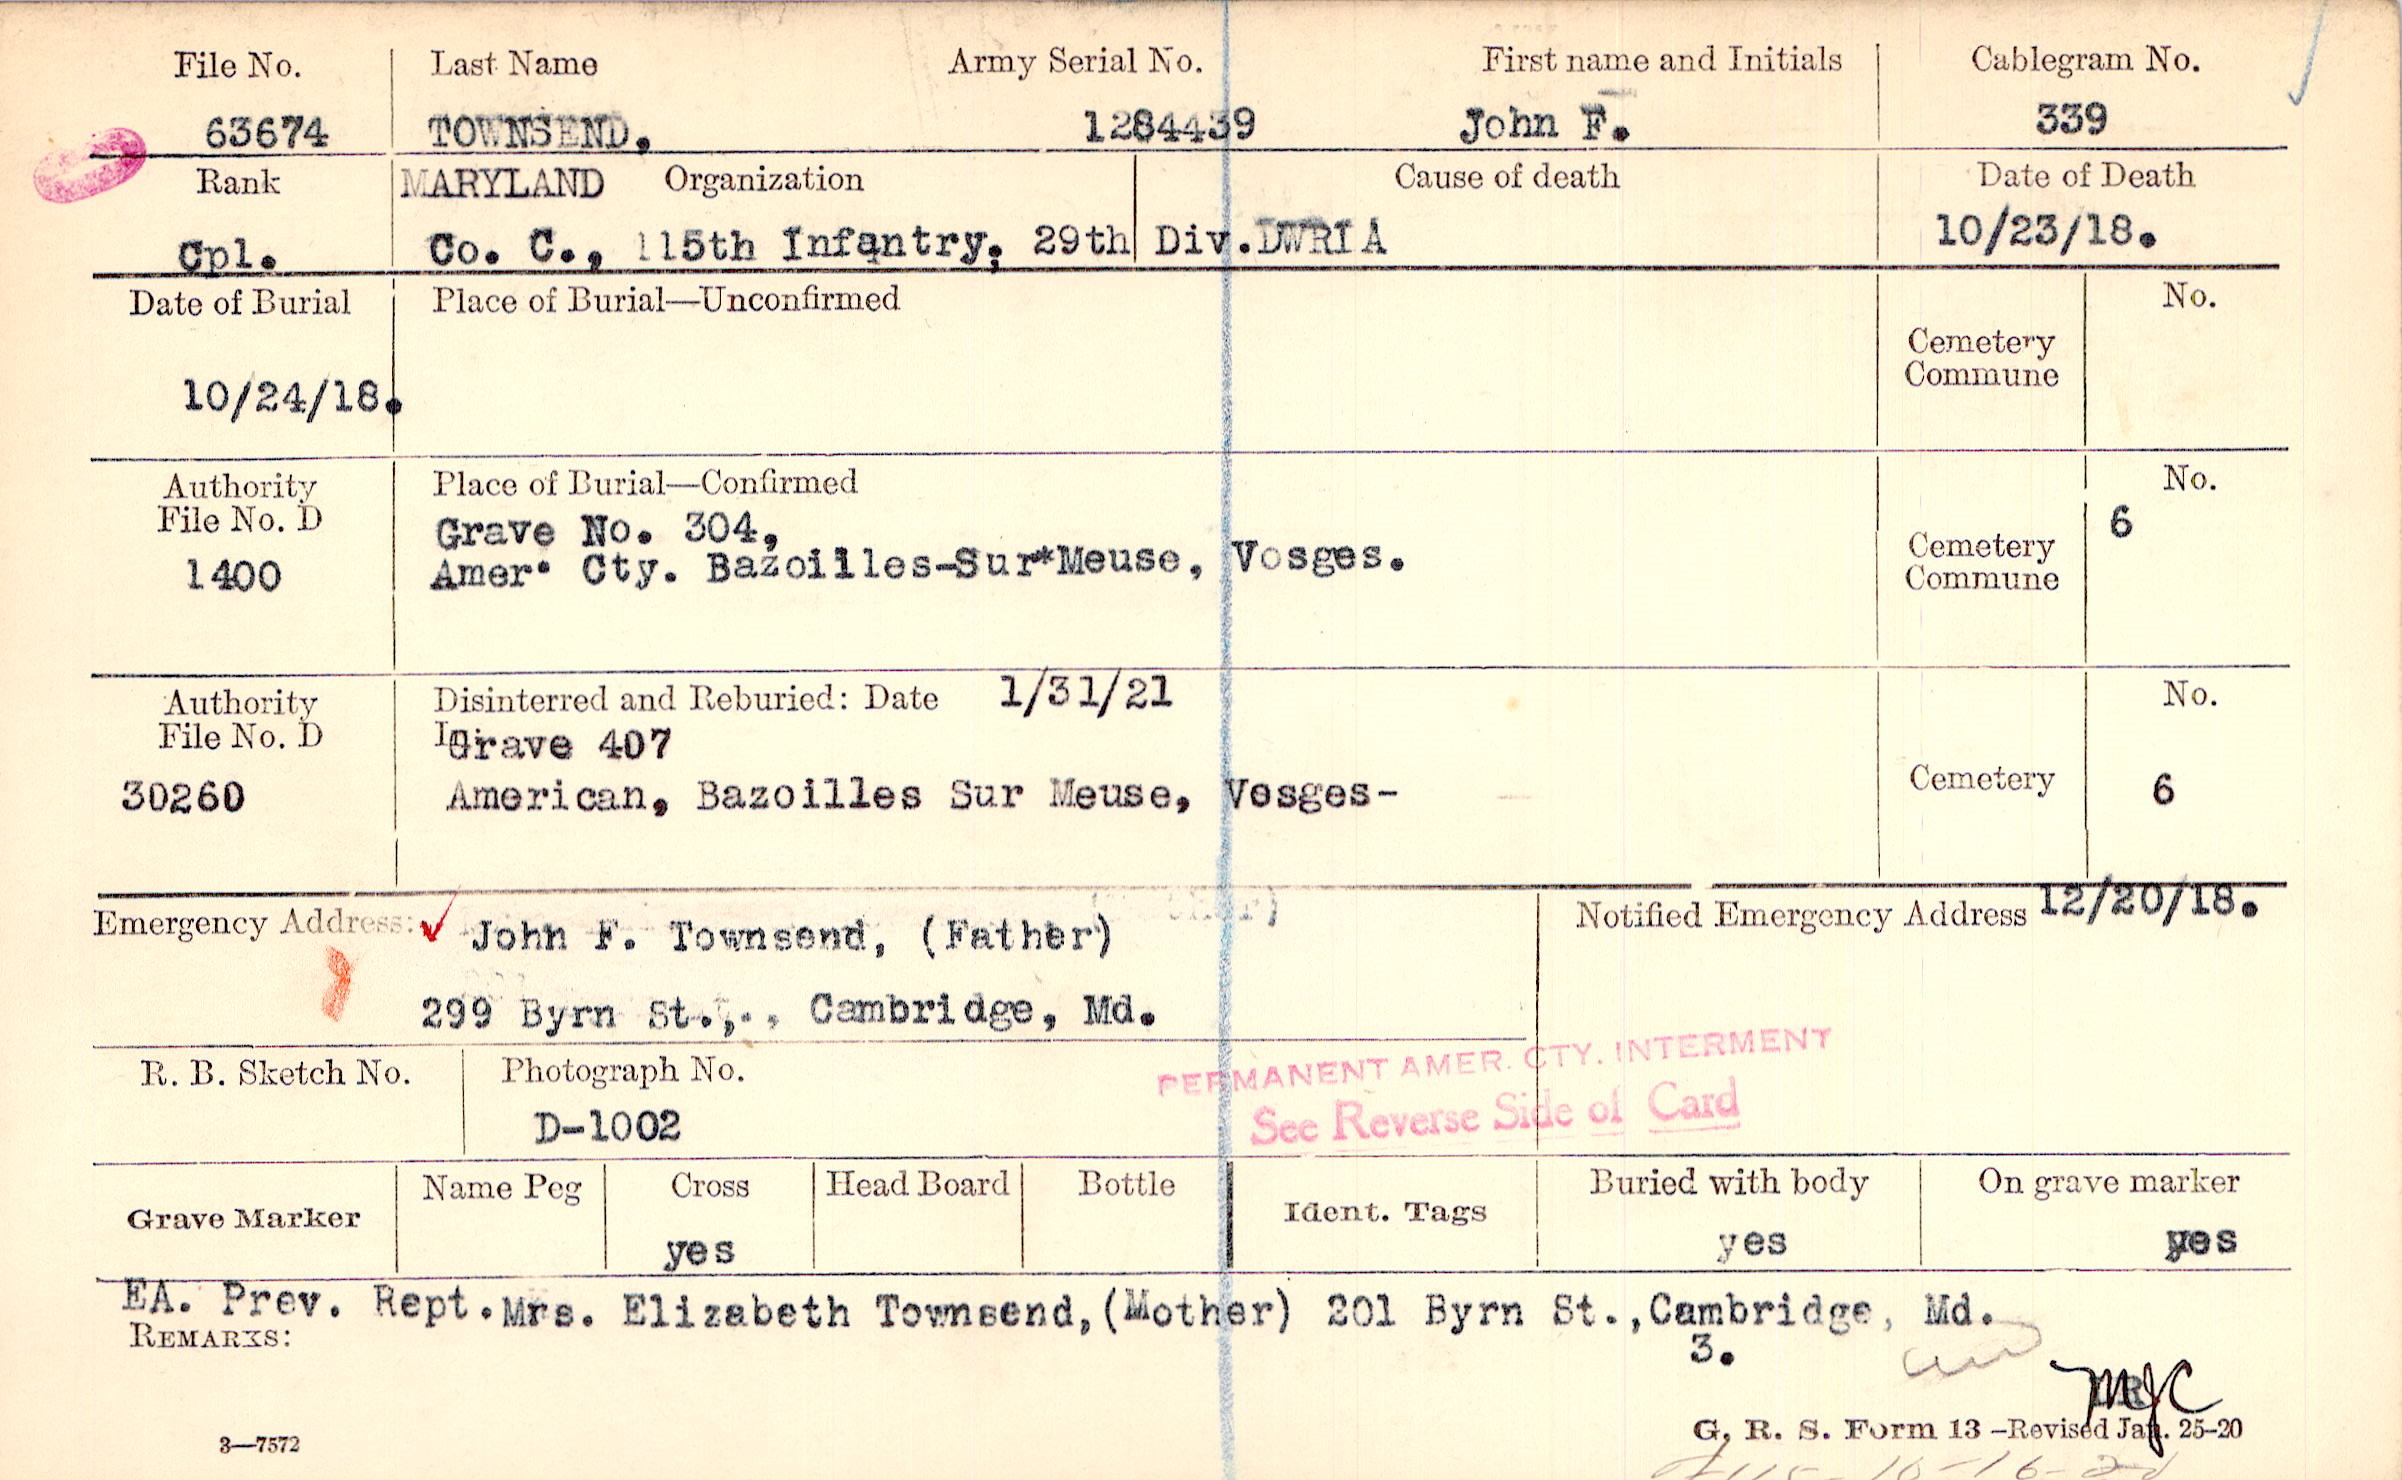 File No. Last Name Army Serial No. First name and Initials Cablegram No.
63674 TOWNSEND, 1284439 John F. 339
Rank MARYLAND Organization Cause of death Date of Death
Cpl. Co. C., 115th Infantry, 29th Div. DWRIA 10/23/18.
Date of Burial Place of Burial—Unconfirmed No.
Cemetery
Commune
10/24/18.
Authority Place of Burial—Confirmed No.
File No. D Grave No. 304, 6
Cemetery
1400 Amer. Cty. Bazoilles-Sur*Meuse, Vosges.
Commune
Authority Disinterred and Reburied: Date 1/31/21 No.
File No. D In Grave 407
30260 American, Bazoilles Sur Meuse, Vosges- Cemetery 6
Emergency Address: John F. Townsend, (Father) Notified Emergency Address 12/20/18.
299 Byrn St.,., Cambridge, Md.
R. B. Sketch No. Photograph No.
D-1002
PERMANENT AMER. CTY. INTERMENT
See Reverse Side of Card
Grave Marker Name Peg Cross Head Board Bottle Ident. Tags Buried with body On grave marker
yes yes yes
EA. Prev. Rept. Mrs. Elizabeth Townsend, (Mother) 201 Byrn St., Cambridge, Md.
REMARKS:
3.
MJC
3—7572
G. R. S. Form 13 —Revised Jan. 25-20